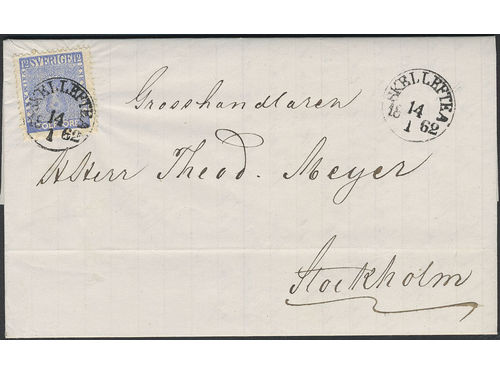 12 SVERIGE 12
TOLF ÖRE
SKELLEFTEA
14
1 62
SKELLEFTEA
14
1 62
Grosshandlaren
Herr Theod. Meyer
Stockholm